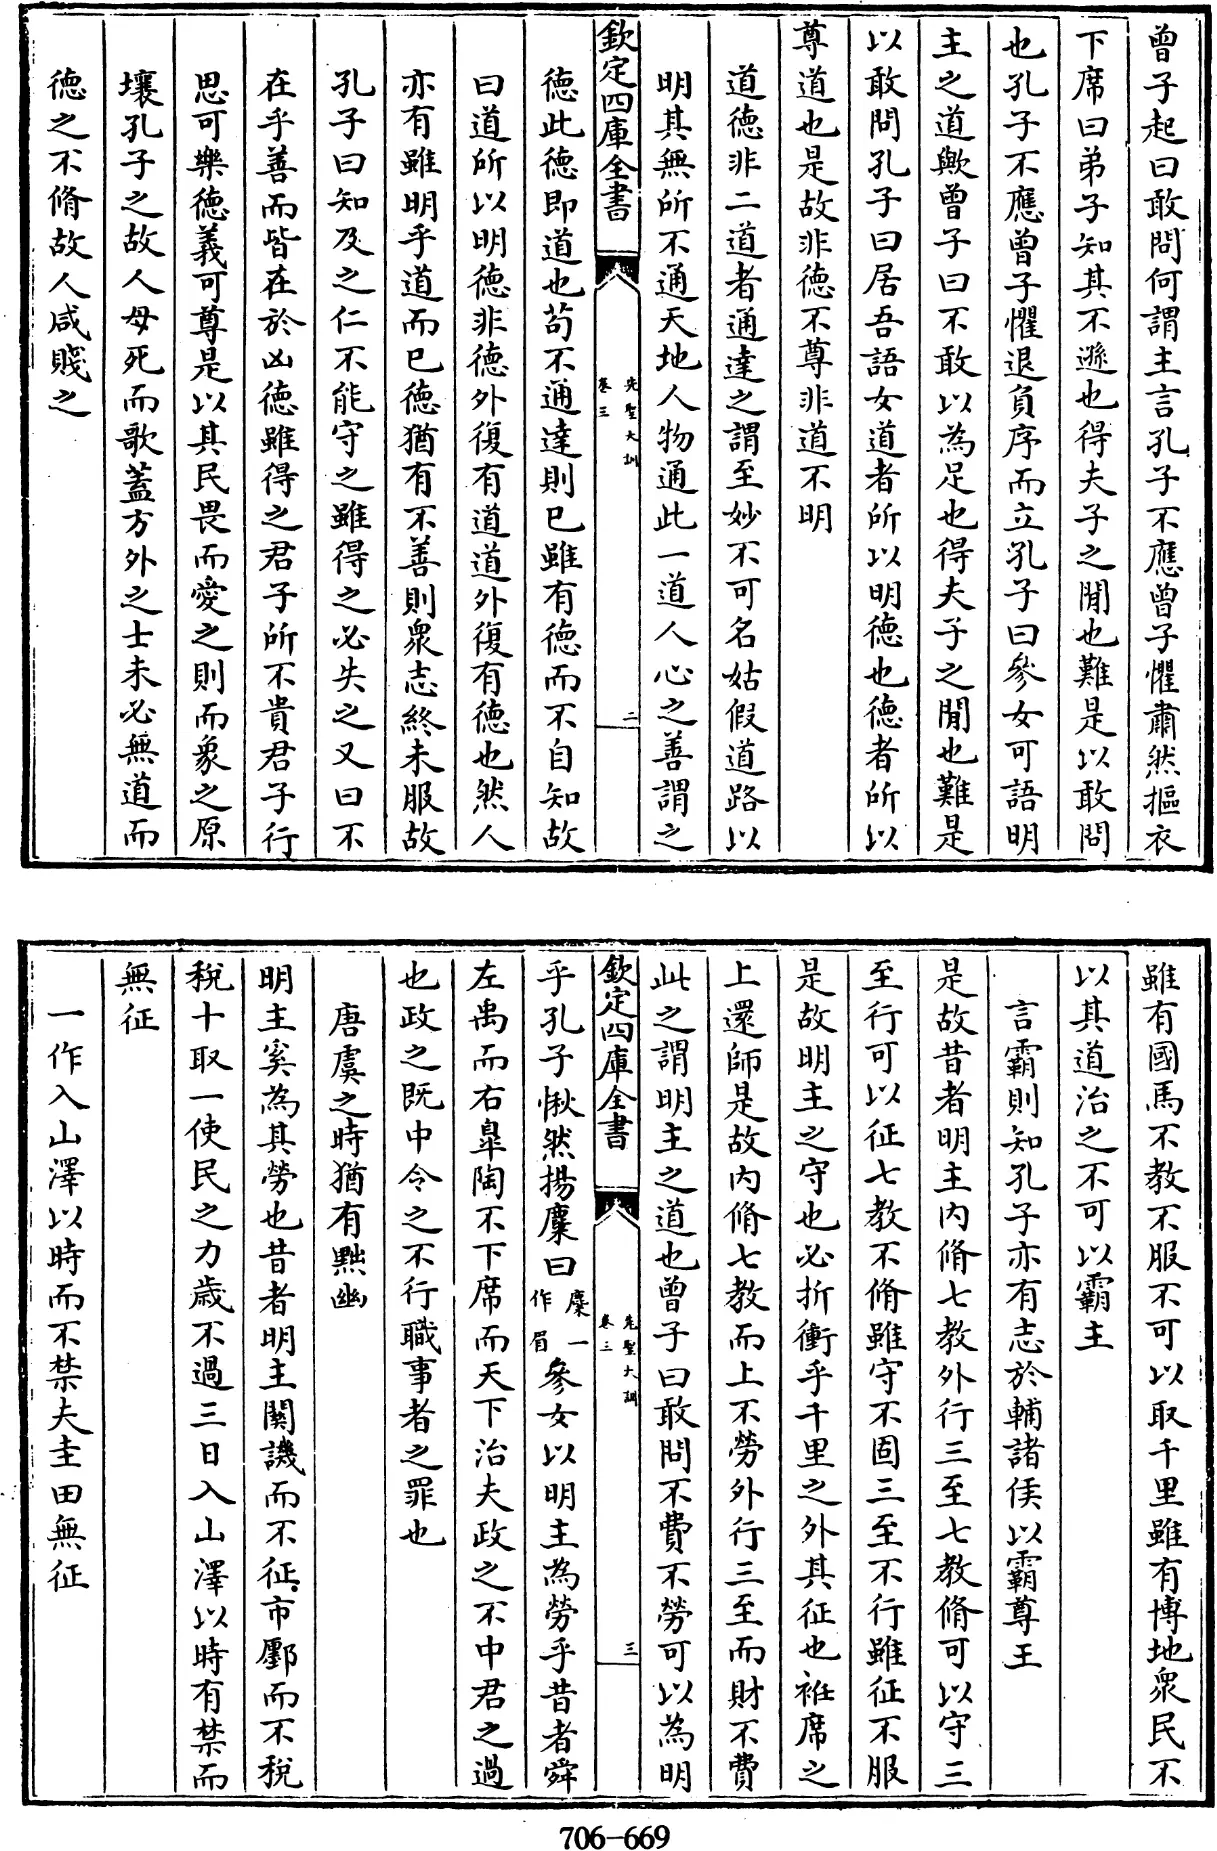 曾子起曰敢問何謂主言孔子不應曾子懼肅然摳衣
下席曰弟子知其不遜也得夫子之閒也難是以敢問
也孔子不應曾子懼退負序而立孔子曰參女可語明
主之道歟曾子曰不敢以為足也得夫子之閒也難是
以敢問孔子曰居吾語女道者所以明德也德者所以
尊道也是故非德不尊非道不明
道德非二道者通達之謂至妙不可名姑假道路以
明其無所不通天地人物通此一道人心之善謂之
欽定四庫全書
先聖大訓
卷三
二
德此德即道也苟不通達則已雖有德而不自知故
曰道所以明德非德外復有道道外復有德也然人
亦有雖明乎道而已德猶有不善則衆志終未服故
孔子曰知及之仁不能守之雖得之必失之又曰不
在乎善而皆在於凶德雖得之君子所不貴君子行
思可樂德義可尊是以其民畏而愛之則而象之原
壤孔子之故人母死而歌蓋方外之士未必無道而
德之不脩故人咸賤之
雖有國馬不教不服不可以取千里雖有博地衆民不
以其道治之不可以霸主
言霸則知孔子亦有志於輔諸侯以霸尊王
是故昔者明主内脩七教外行三至七教脩可以守三
至行可以征七教不脩雖守不固三至不行雖征不服
是故明主之守也必折衝乎千里之外其征也袵席之
上還師是故内脩七教而上不勞外行三至而財不費
此之謂明主之道也曾子曰敢問不費不勞可以為明
欽定四庫全書
先聖大訓
卷三
三
乎孔子愀然揚麋曰麋一作眉參女以明主為勞乎昔者舜
左禹而右臯陶不下席而天下治夫政之不中君之過
也政之既中令之不行職事者之罪也
唐虞之時猶有黜幽
明主奚為其勞也昔者明主關譏而不征市鄽而不稅
稅十取一使民之力歲不過三日入山澤以時有禁而
無征
一作入山澤以時而不禁夫圭田無征
706-669